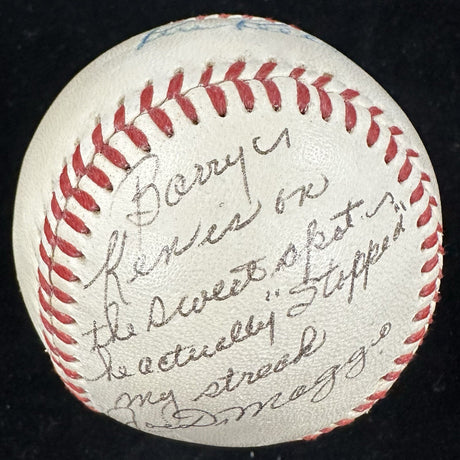 Barry
Ken is on
the sweet spot
he actually "Stopped"
my streak
Joe DiMaggio